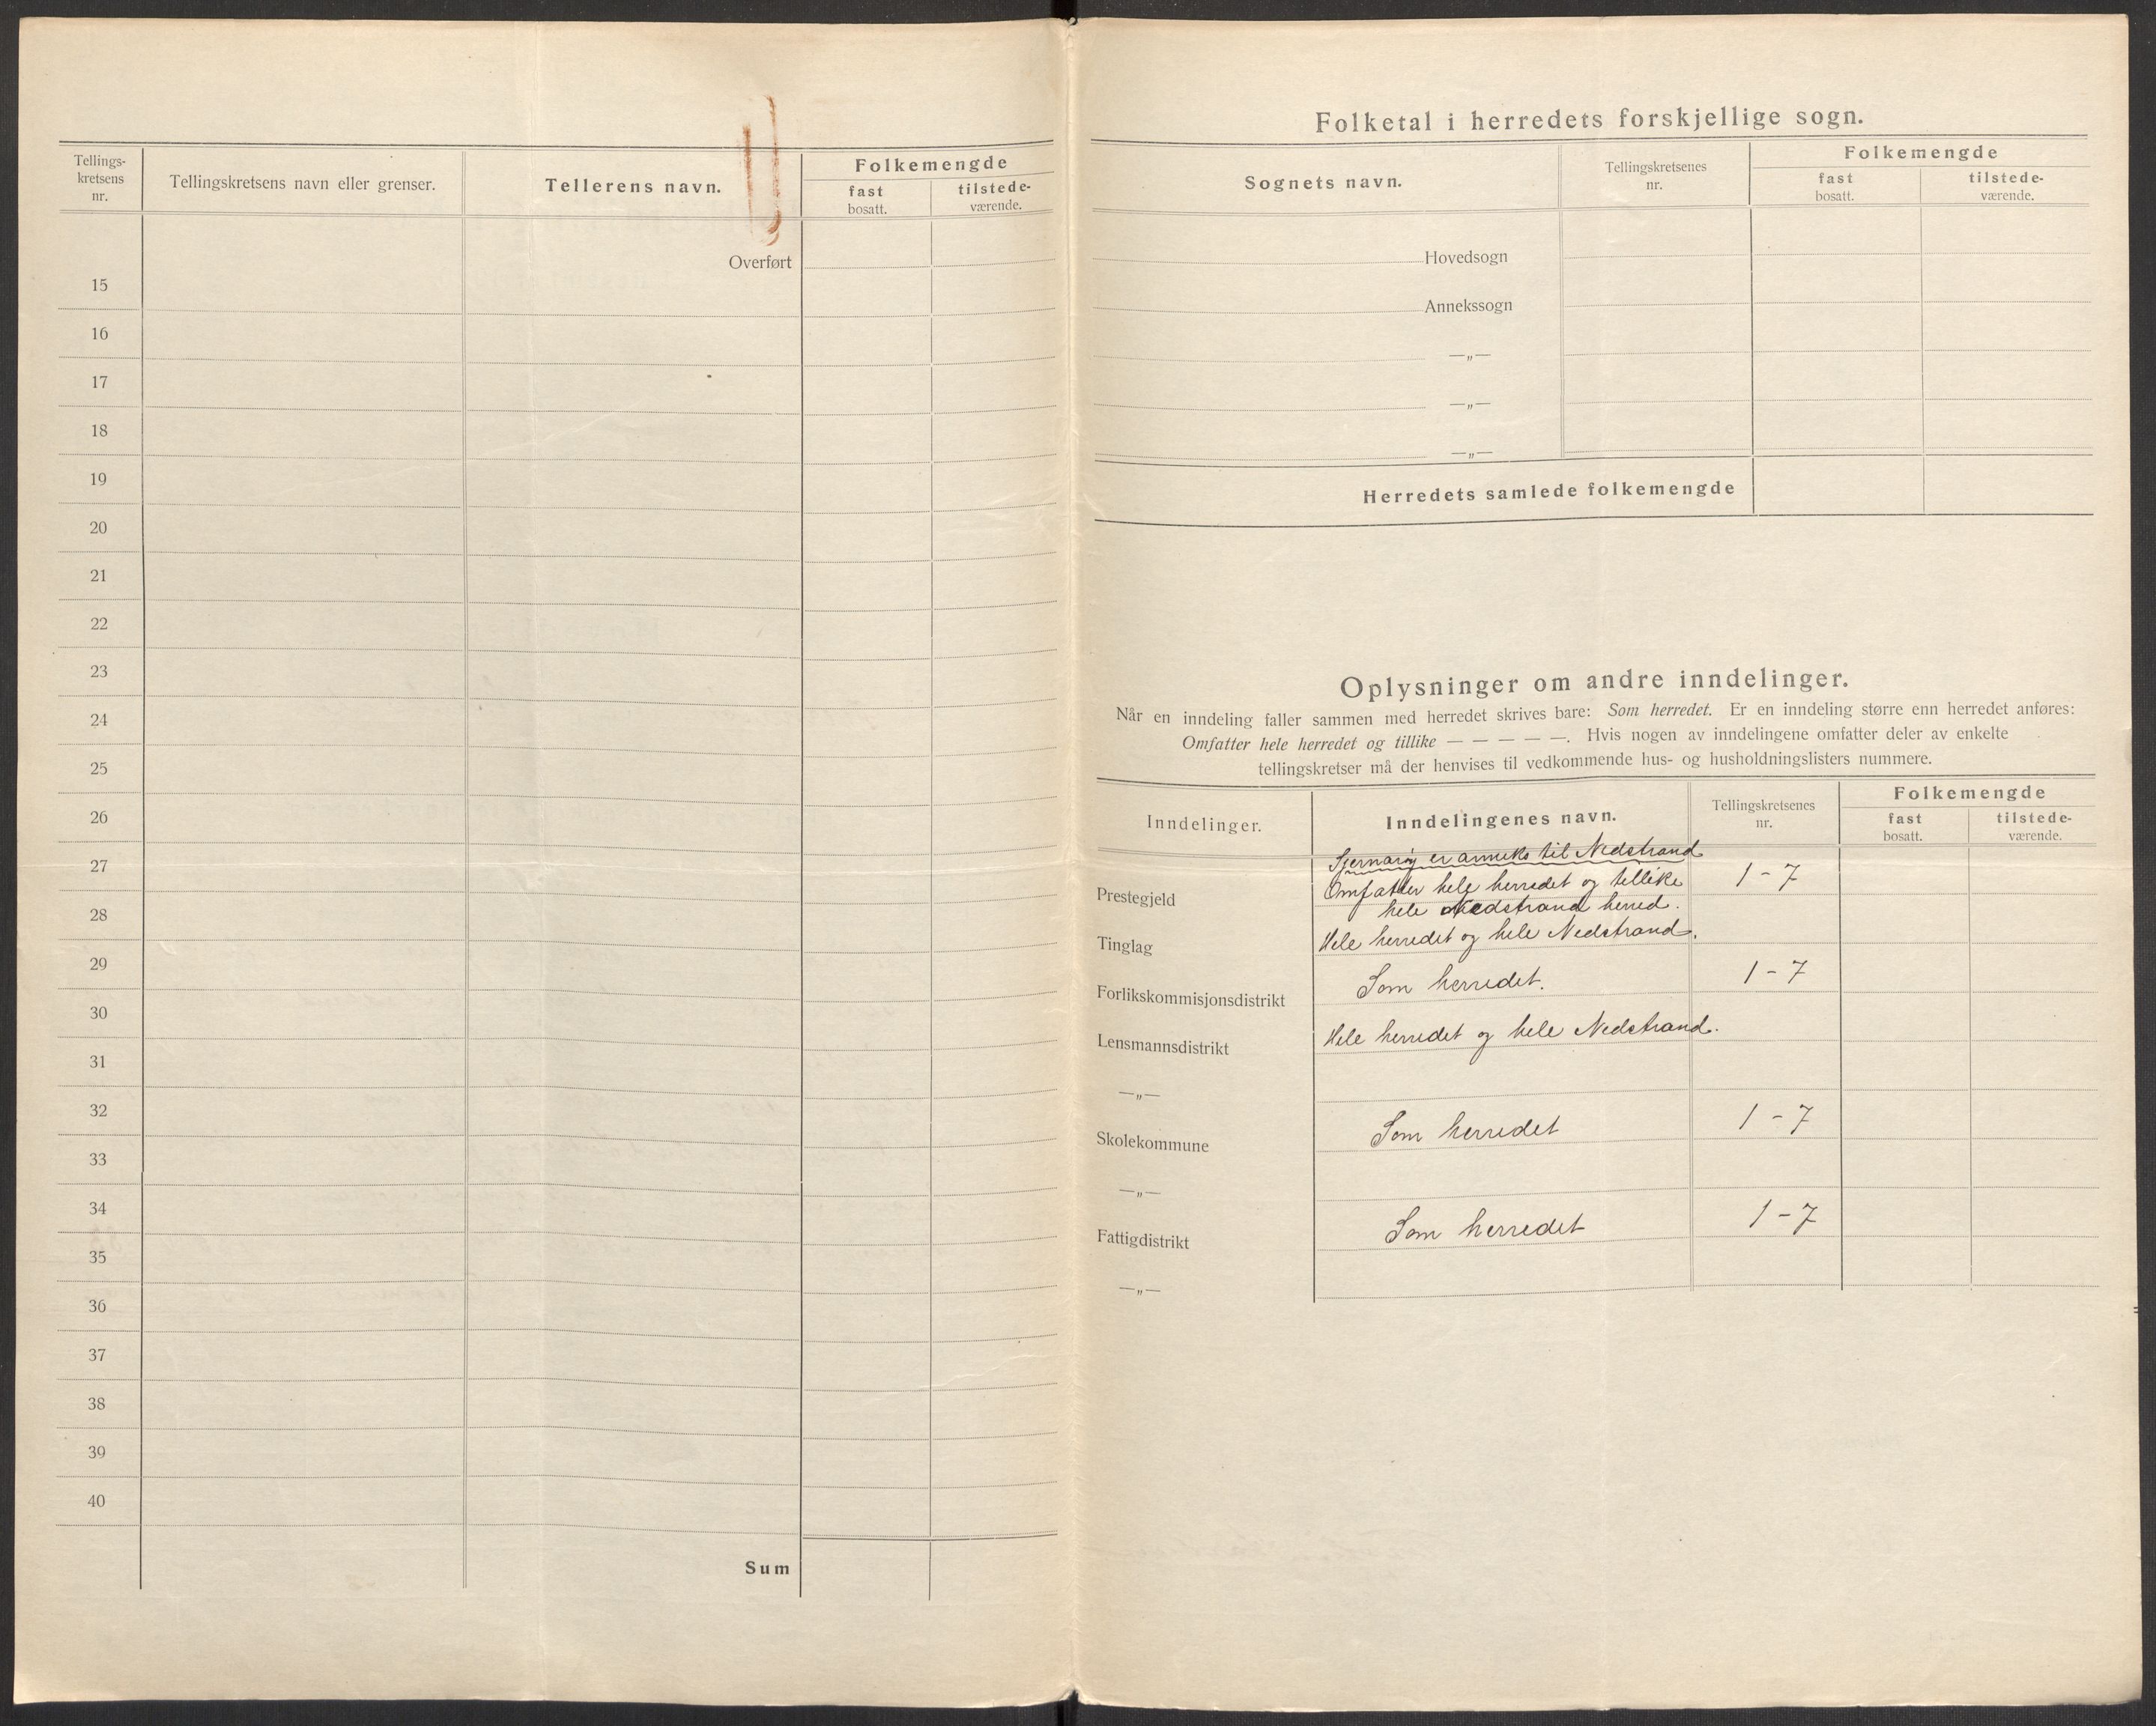 Tellings-
kretsens
nr.
Tellingskretsens navn eller grenser.
Tellerens navn.
Folkemengde
fast
bosatt.
tilstede-
værende.
Overført
15
16
17
18
19
20
21
22
23
24
25
26
27
28
29
30
31
32
33
34
35
36
37
38
39
40
Sum
Folketal i herredets forskjellige sogn.
Sognets navn.
Tellingskretsenes
nr.
Folkemengde
fast
bosatt.
tilstede-
værende.
Hovedsogn
Annekssogn
—„—
—„—
—„—
Herredets samlede folkemengde
Oplysninger om andre inndelinger.
Når en inndeling faller sammen med herredet skrives bare: Som herredet. Er en inndeling større enn herredet anføres:
Omfatter hele herredet og tillike — — — — —. Hvis nogen av inndelingene omfatter deler av enkelte
tellingskretser må der henvises til vedkommende hus- og husholdningslisters nummere.
Inndelinger.
Inndelingenes navn.
Tellingskretsenes
nr.
Folkemengde
fast
bosatt.
tilstede-
værende.
Sjernarøy er anneks til Nedstrand
Prestegjeld Omfatter hele herredet og tillike 1 - 7
hele Nedstrand herred.
Tinglag Hele herredet og hele Nedstrand.
Forlikskommisjonsdistrikt Som herredet. 1 - 7
Lensmannsdistrikt Hele herredet og hele Nedstrand.
—„—
Skolekommune Som herredet 1 - 7
—„—
Fattigdistrikt Som herredet 1 - 7
—„—